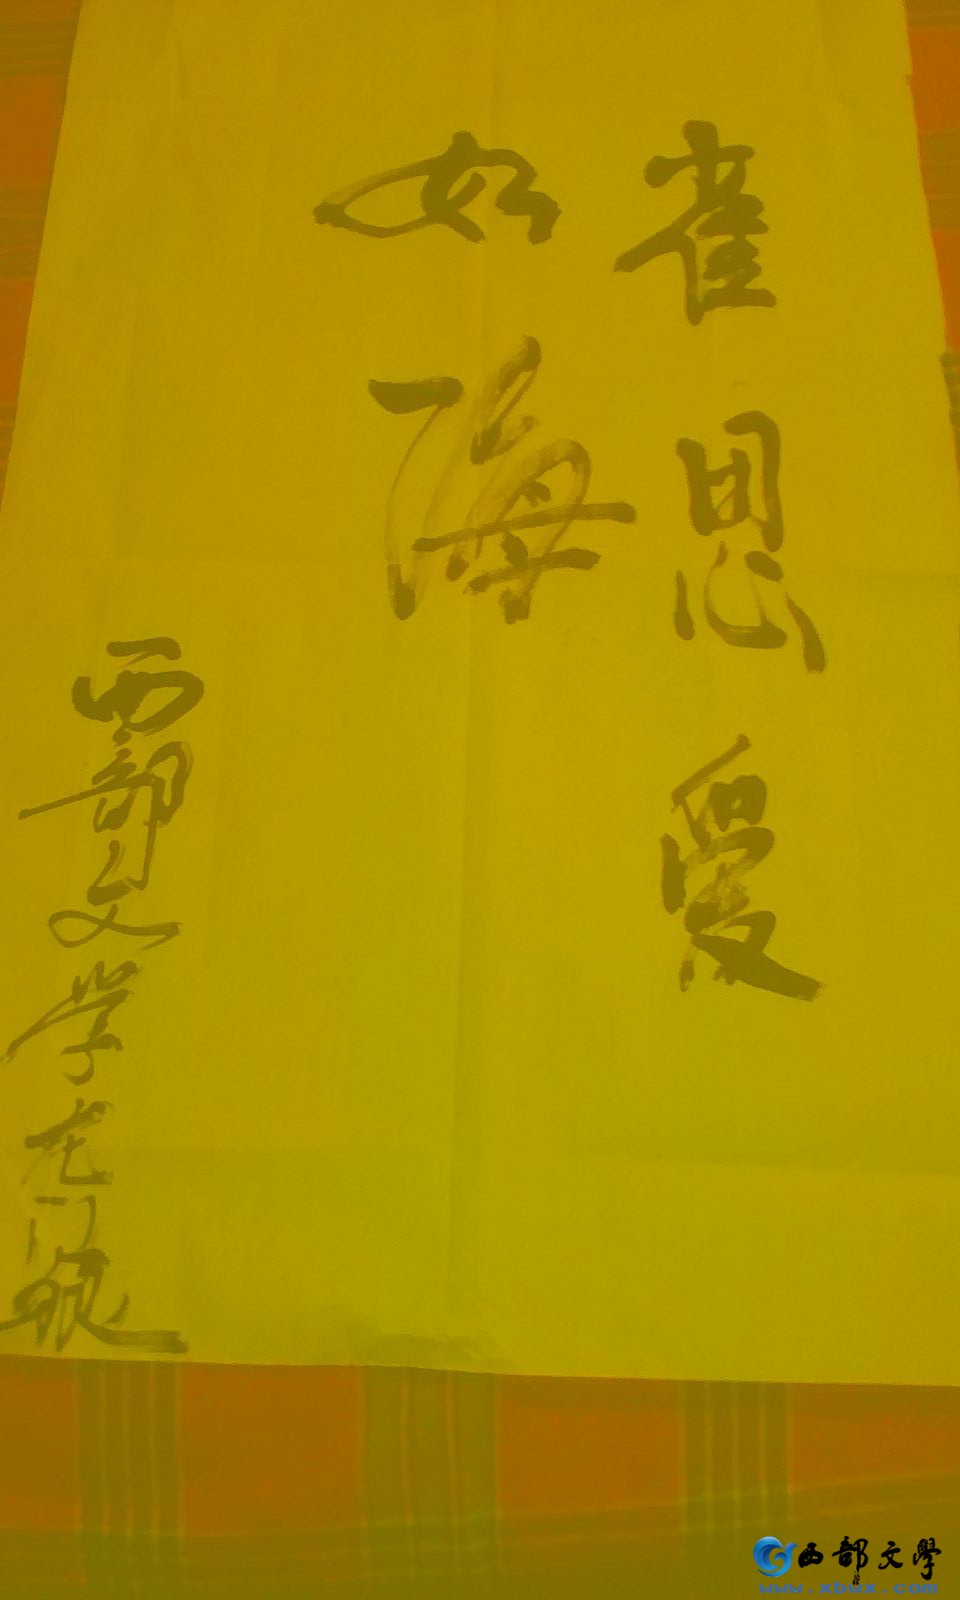 雀思爱
如海
西部文学龙门
西部文学
www.xbwx.com